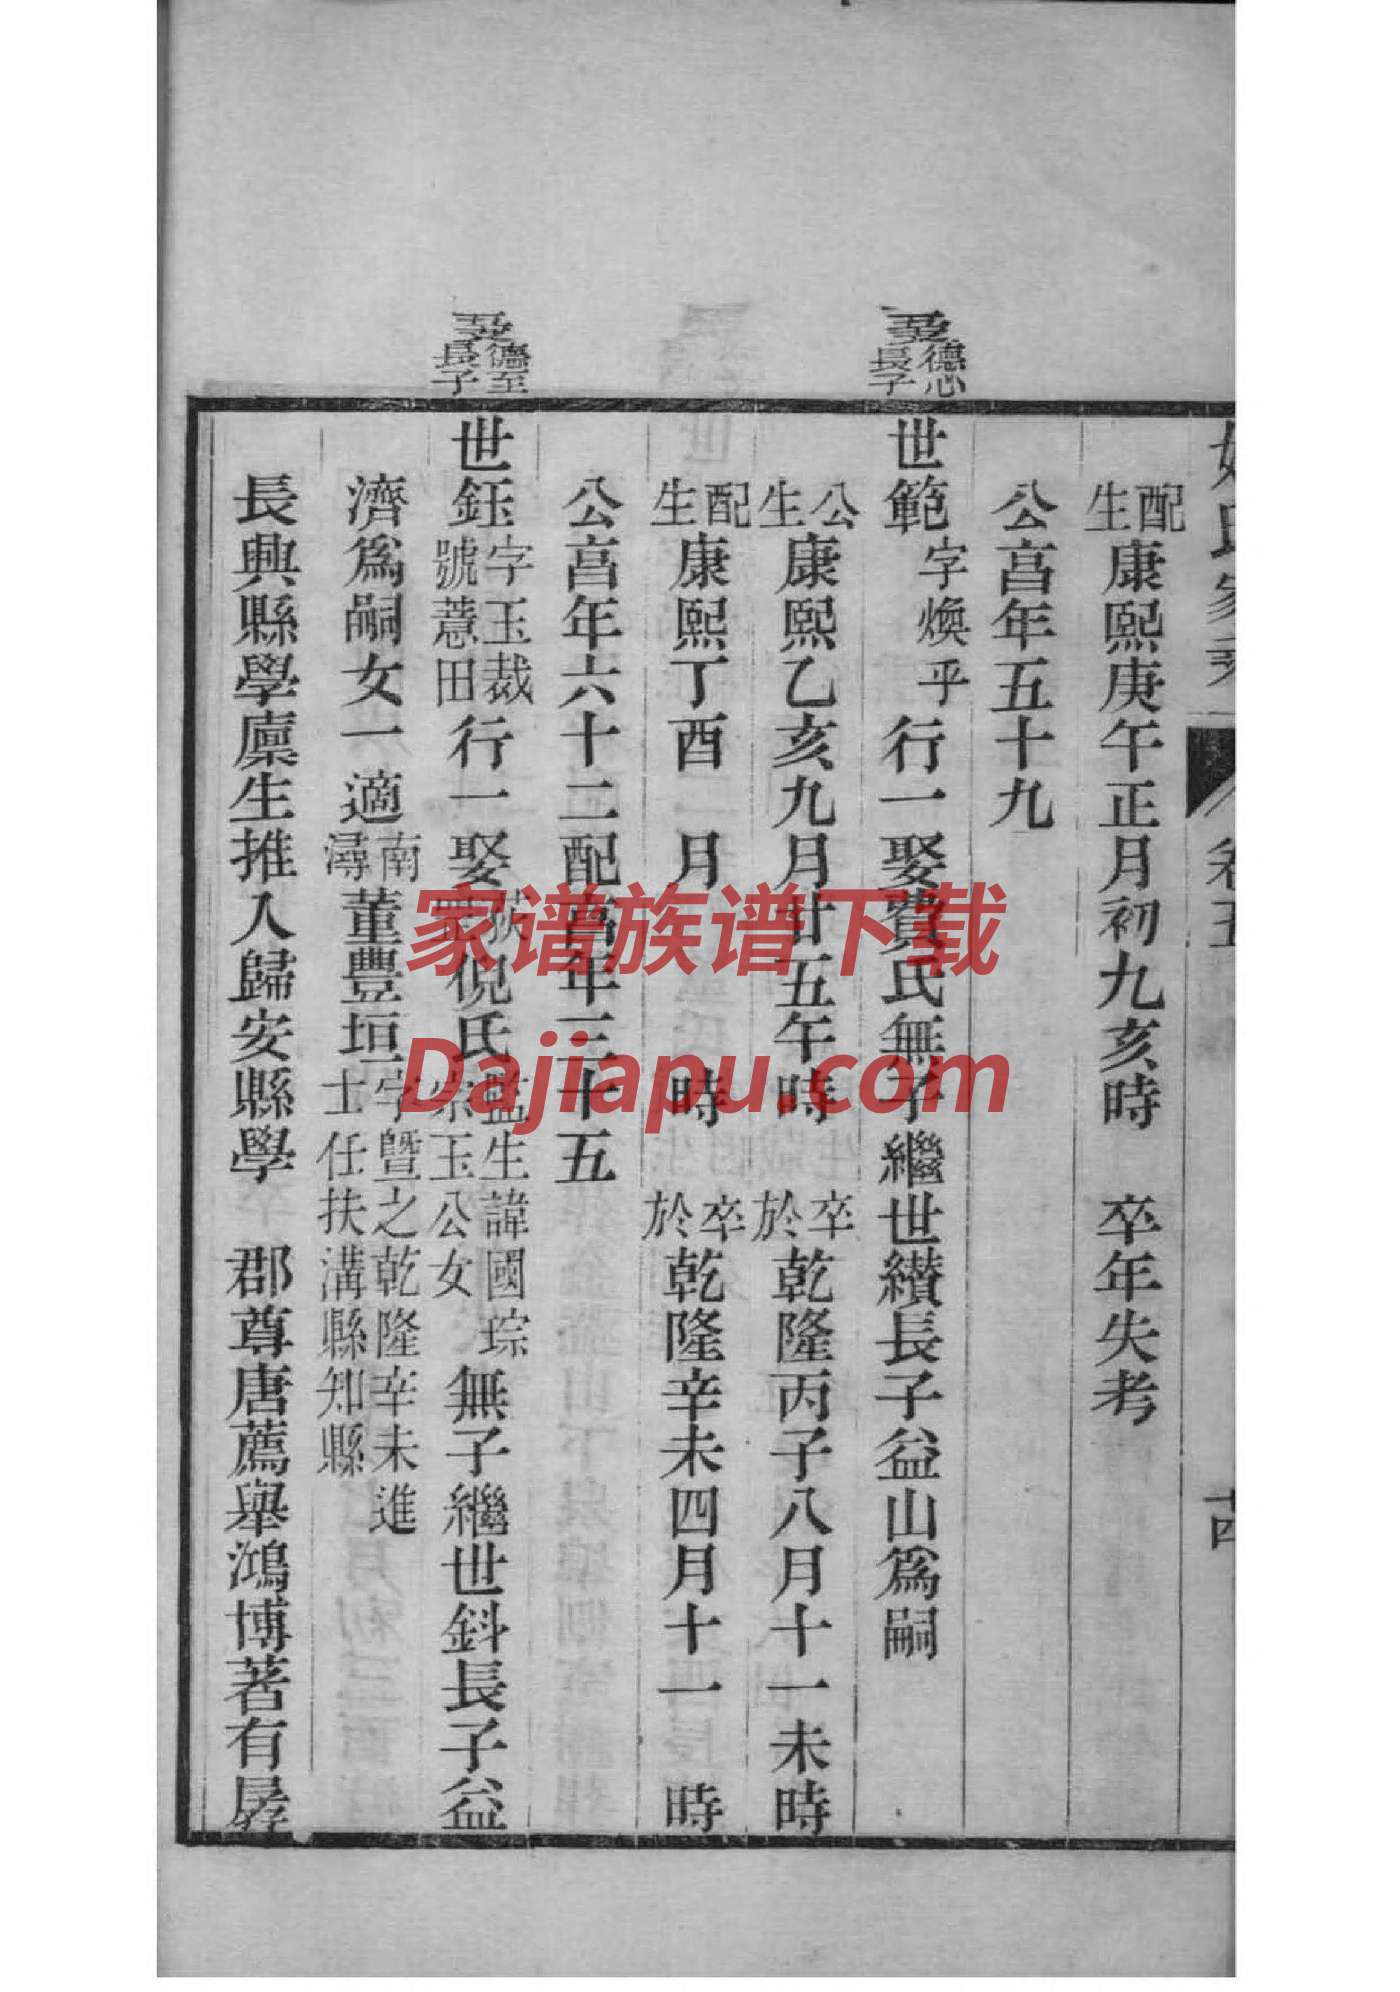 姚氏家乘 卷五 十四
配生康熙庚午正月初九亥時 卒年失考
公亯年五十九
德心長子
世範字煥乎行一娶費氏無子繼世纘長子益山為嗣
公生康熙乙亥九月廿五午時 卒於乾隆丙子八月十一未時
配生康熙丁酉二月 時 卒於乾隆辛未四月十一 時
公亯年六十二配亯年三十五
德至長子
世鈺字玉裁號薏田行一娶倪氏監生諱國琮宗玉公女無子繼世鈄長子益
濟為嗣女一適南潯董豐垣字暨之乾隆辛未進士任扶溝縣知縣
長興縣學廩生推入歸安縣學 郡尊唐薦舉鴻博著有孱
家谱族谱下载
Dajiapu.com